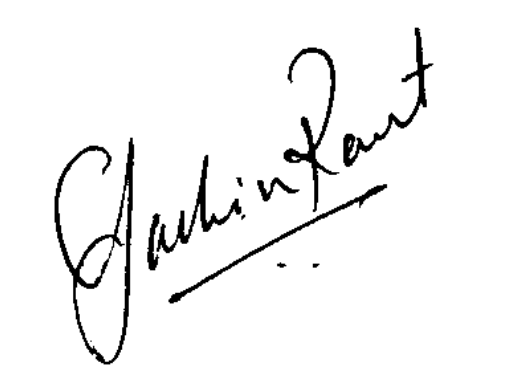 Sachin Raut